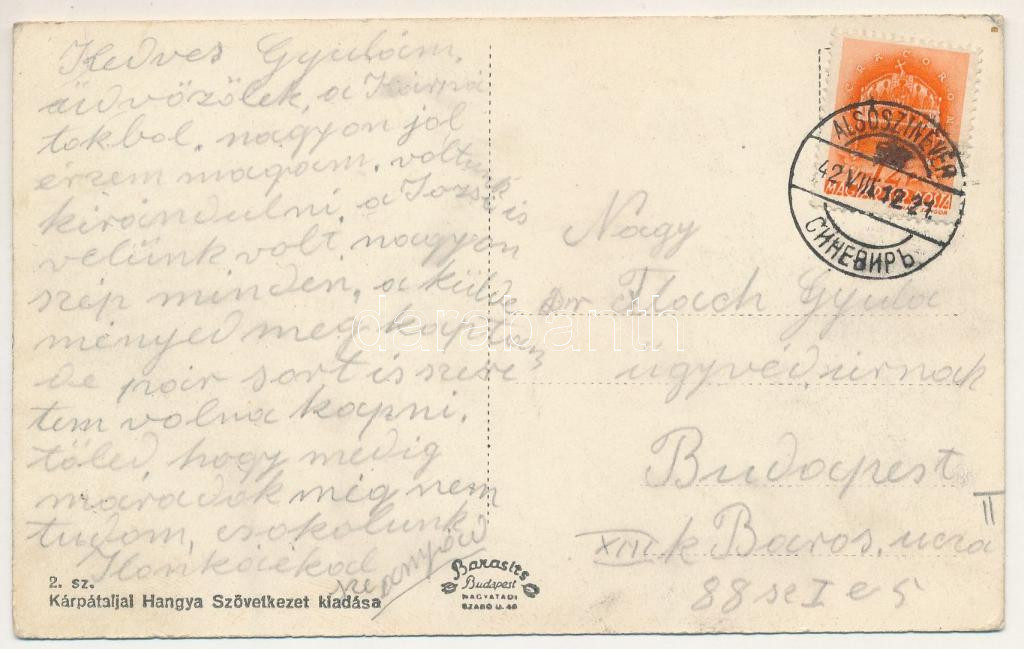 Kedves Gyulám,
üdvözölek, a Kárpá
tokbol, nagyon jól
érzem magam, voltunk
kirándulni, a Jozsi is
velünk volt, nagyon
szép minden, a külde
ményed meg kaptam
de pár sort is szere
tem volna kapni,
töled, hogy medig
maradok még nem
tudom, csokolunk
Ilonkáékad
2. sz.
Kárpátaljai Hangya Szövetkezet kiadása
Barasits
Budapest
NAGYATÁDI
SZABÓ U. 40
ALSÓSZINEVÉR
42.VIII.12.21
СИНЕВИРЬ
MAGYAR POSTA
Nagy
Dr Flach Gyula
ügyvéd úrnak
Budapest
II
XIII k Baros, ucza
88 sz I e 5
darabanth